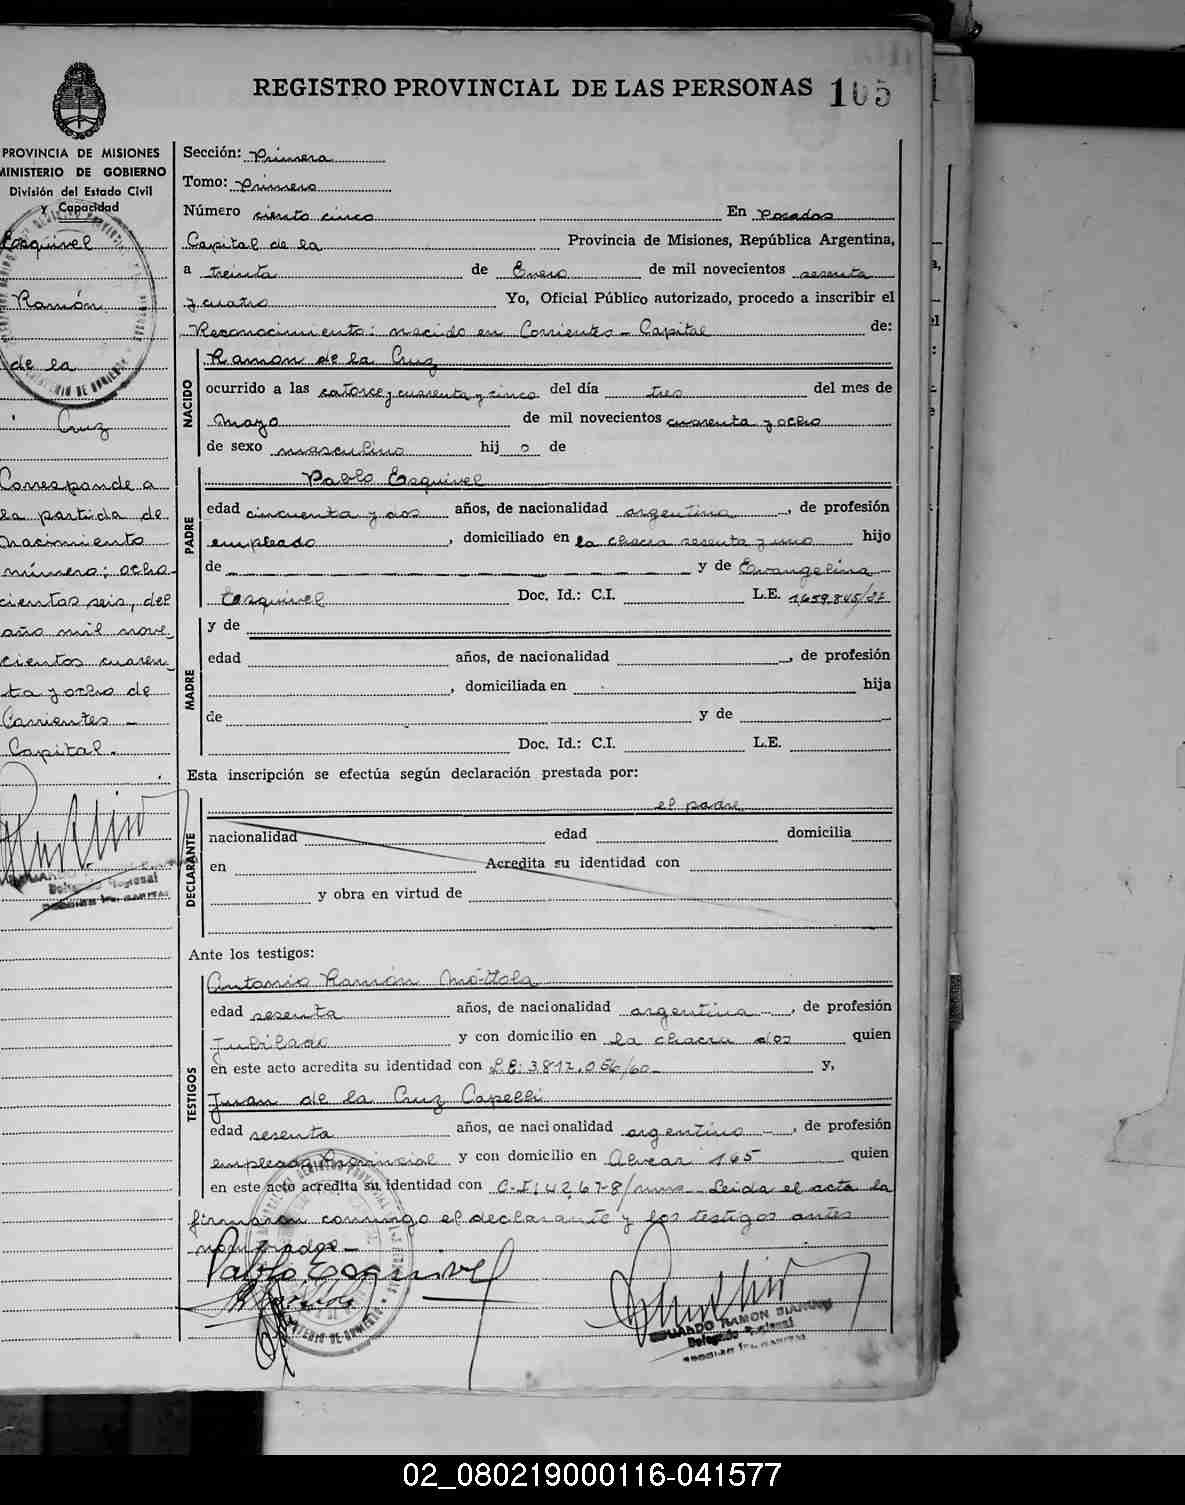 REGISTRO PROVINCIAL DE LAS PERSONAS 105
PROVINCIA DE MISIONES
MINISTERIO DE GOBIERNO
División del Estado Civil
y Capacidad
Esquivel
Ramón
de la
Cruz
Corresponde a
la partida de
nacimiento
número: ocho
cientos seis, del
año mil nove
cientos cuaren
ta y ocho de
Corrientes -
Capital.
Sección: Primera
Tomo: Primero
Número ciento cinco En Posadas
Capital de la Provincia de Misiones, República Argentina,
a treinta de Enero de mil novecientos sesenta
y cuatro Yo, Oficial Público autorizado, procedo a inscribir el
Reconocimiento: nacido en Corrientes - Capital de:
NACIDO
Ramon de la Cruz
ocurrido a las catorce y cuarenta y cinco del día tres del mes de
Mayo de mil novecientos cuarenta y ocho
de sexo masculino hij o de
PADRE
Pablo Esquivel
edad cincuenta y dos años, de nacionalidad argentina, de profesión
empleado, domiciliado en la chacra sesenta y uno hijo
de y de Evangelina
Esquivel Doc. Id.: C.I. L.E. 1.659.845/
MADRE
y de
edad años, de nacionalidad , de profesión
, domiciliada en hija
de y de
Doc. Id.: C.I. L.E.
Esta inscripción se efectúa según declaración prestada por:
DECLARANTE
el padre
nacionalidad edad domicilia
en Acredita su identidad con
y obra en virtud de
Ante los testigos:
TESTIGOS
Antonio Ramón Móttola
edad sesenta años, de nacionalidad argentina -, de profesión
Jubilado y con domicilio en la chacra dos quien
en este acto acredita su identidad con L.E: 3.817.056/60 y,
Juan de la Cruz Capelli
edad sesenta años, de nacionalidad argentino -, de profesión
empleado Provincial y con domicilio en Alvear 165 quien
en este acto acredita su identidad con C-I: 42.678/mns - Leida el acta la
firmaron conmigo el declarante y los testigos antes
nombrados -
Pablo Esquivel
EDUARDO RAMON
Delegado Regional
02_080219000116-041577